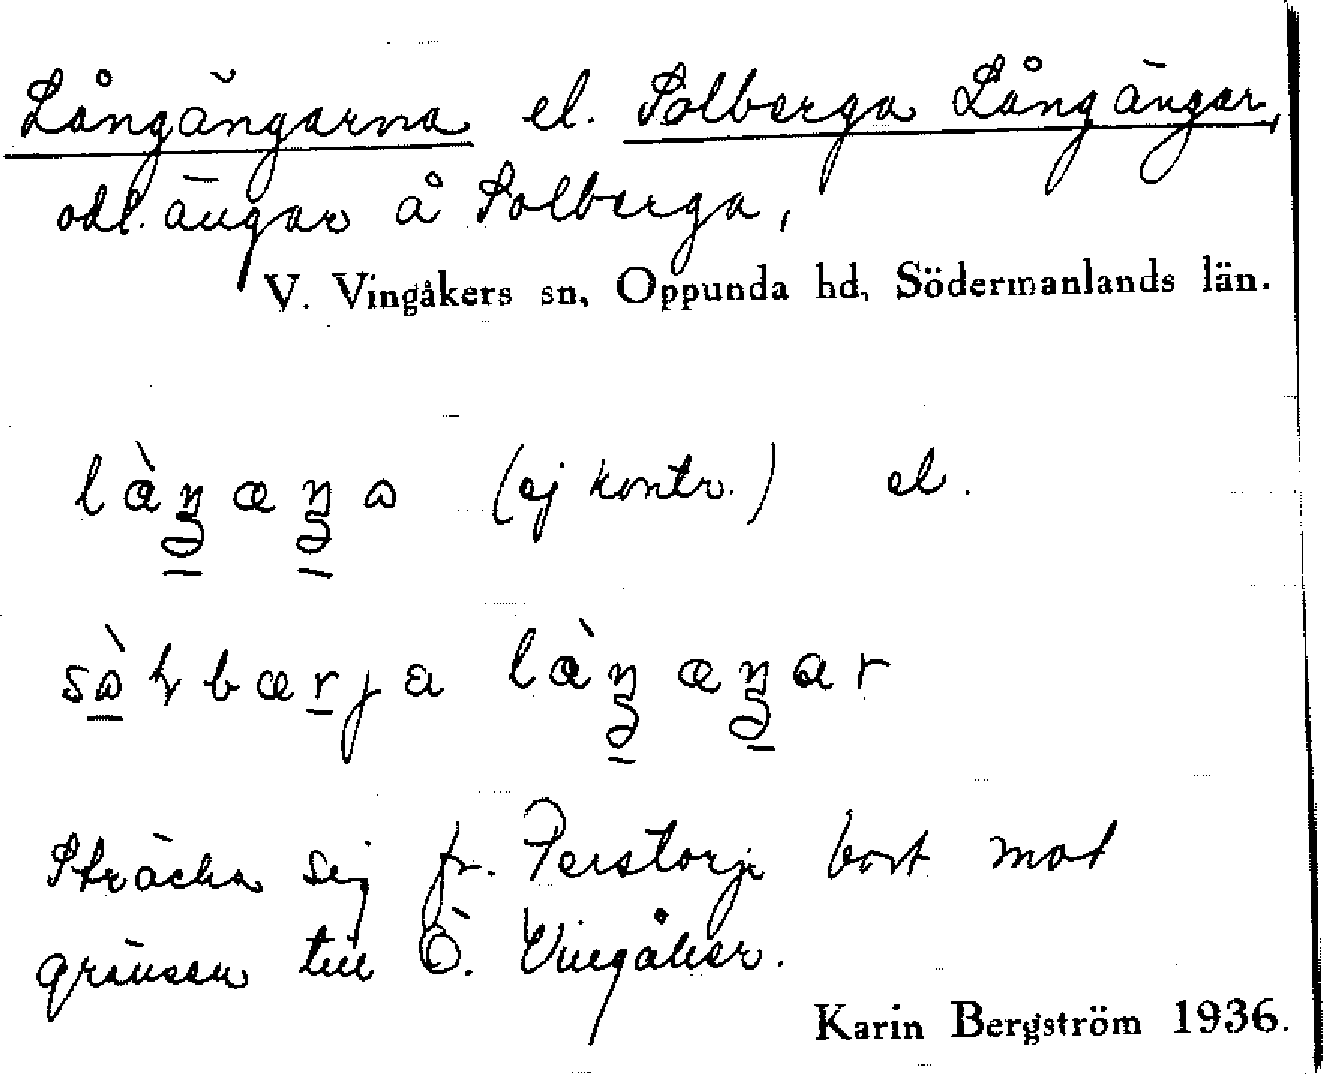 Långängarna el. Solberga Långängar,
odl. ängar å Solberga,
V. Vingåkers sn, Oppunda hd, Södermanlands län.
(ej kontr.) el.
Sträcka sig fr. Perstorp bort mot
gränsen till Ö. Vingåker.
Karin Bergström 1936.